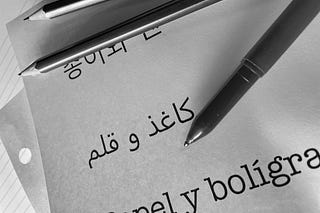 종이와
کاغذ و قلم
Papel y bolígra